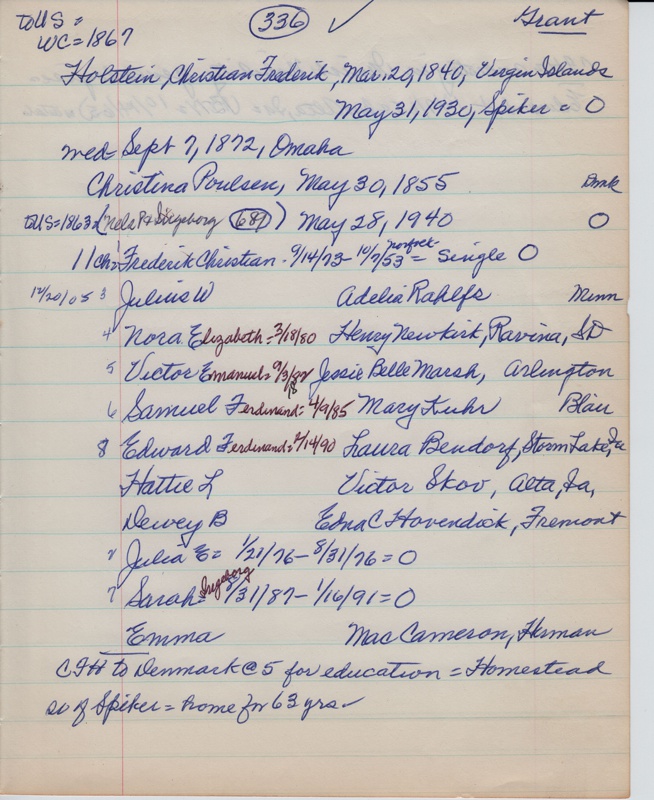 to US = 336 ✓ Grant
WC = 1867
Holstein, Christian Frederik, Mar. 20, 1840, Virgin Islands
May 31, 1930, Spiker = O
wed = Sept 7, 1872, Omaha
Christina Poulsen, May 30, 1855 Dmk
to US = 1863 = (Nels P & Ingeborg 687) May 28, 1940 O
11 ch = 1 Frederik Christian - 9/14/73 - 10/7/53 Norfolk = Single O
12/20/05 3 Julius W Adelia Rahlfs Minn
4 Nora Elizabeth = 3/18/80 Henry Newkirk, Ravina, SD
5 Victor Emanuel = 9/3/82 Jessie Belle Marsh, Arlington
6 Samuel Ferdinand = 4/9/85 Mary Kuhr Blair
8 Edward Ferdinand = /14/90 Laura Bendorf, Storm Lake, Ia
Hattie L Victor Skov, Alta, Ia,
Dewey B Edna C Hovendick, Fremont
2 Julia E = 1/21/76 - 8/31/76 = O
7 Sarah Ingeborg = /31/87 - 1/16/91 = O
Emma Mac Cameron, Herman
CFH to Denmark @ 5 for education = Homestead
SW of Spiker = home for 63 yrs. ✓